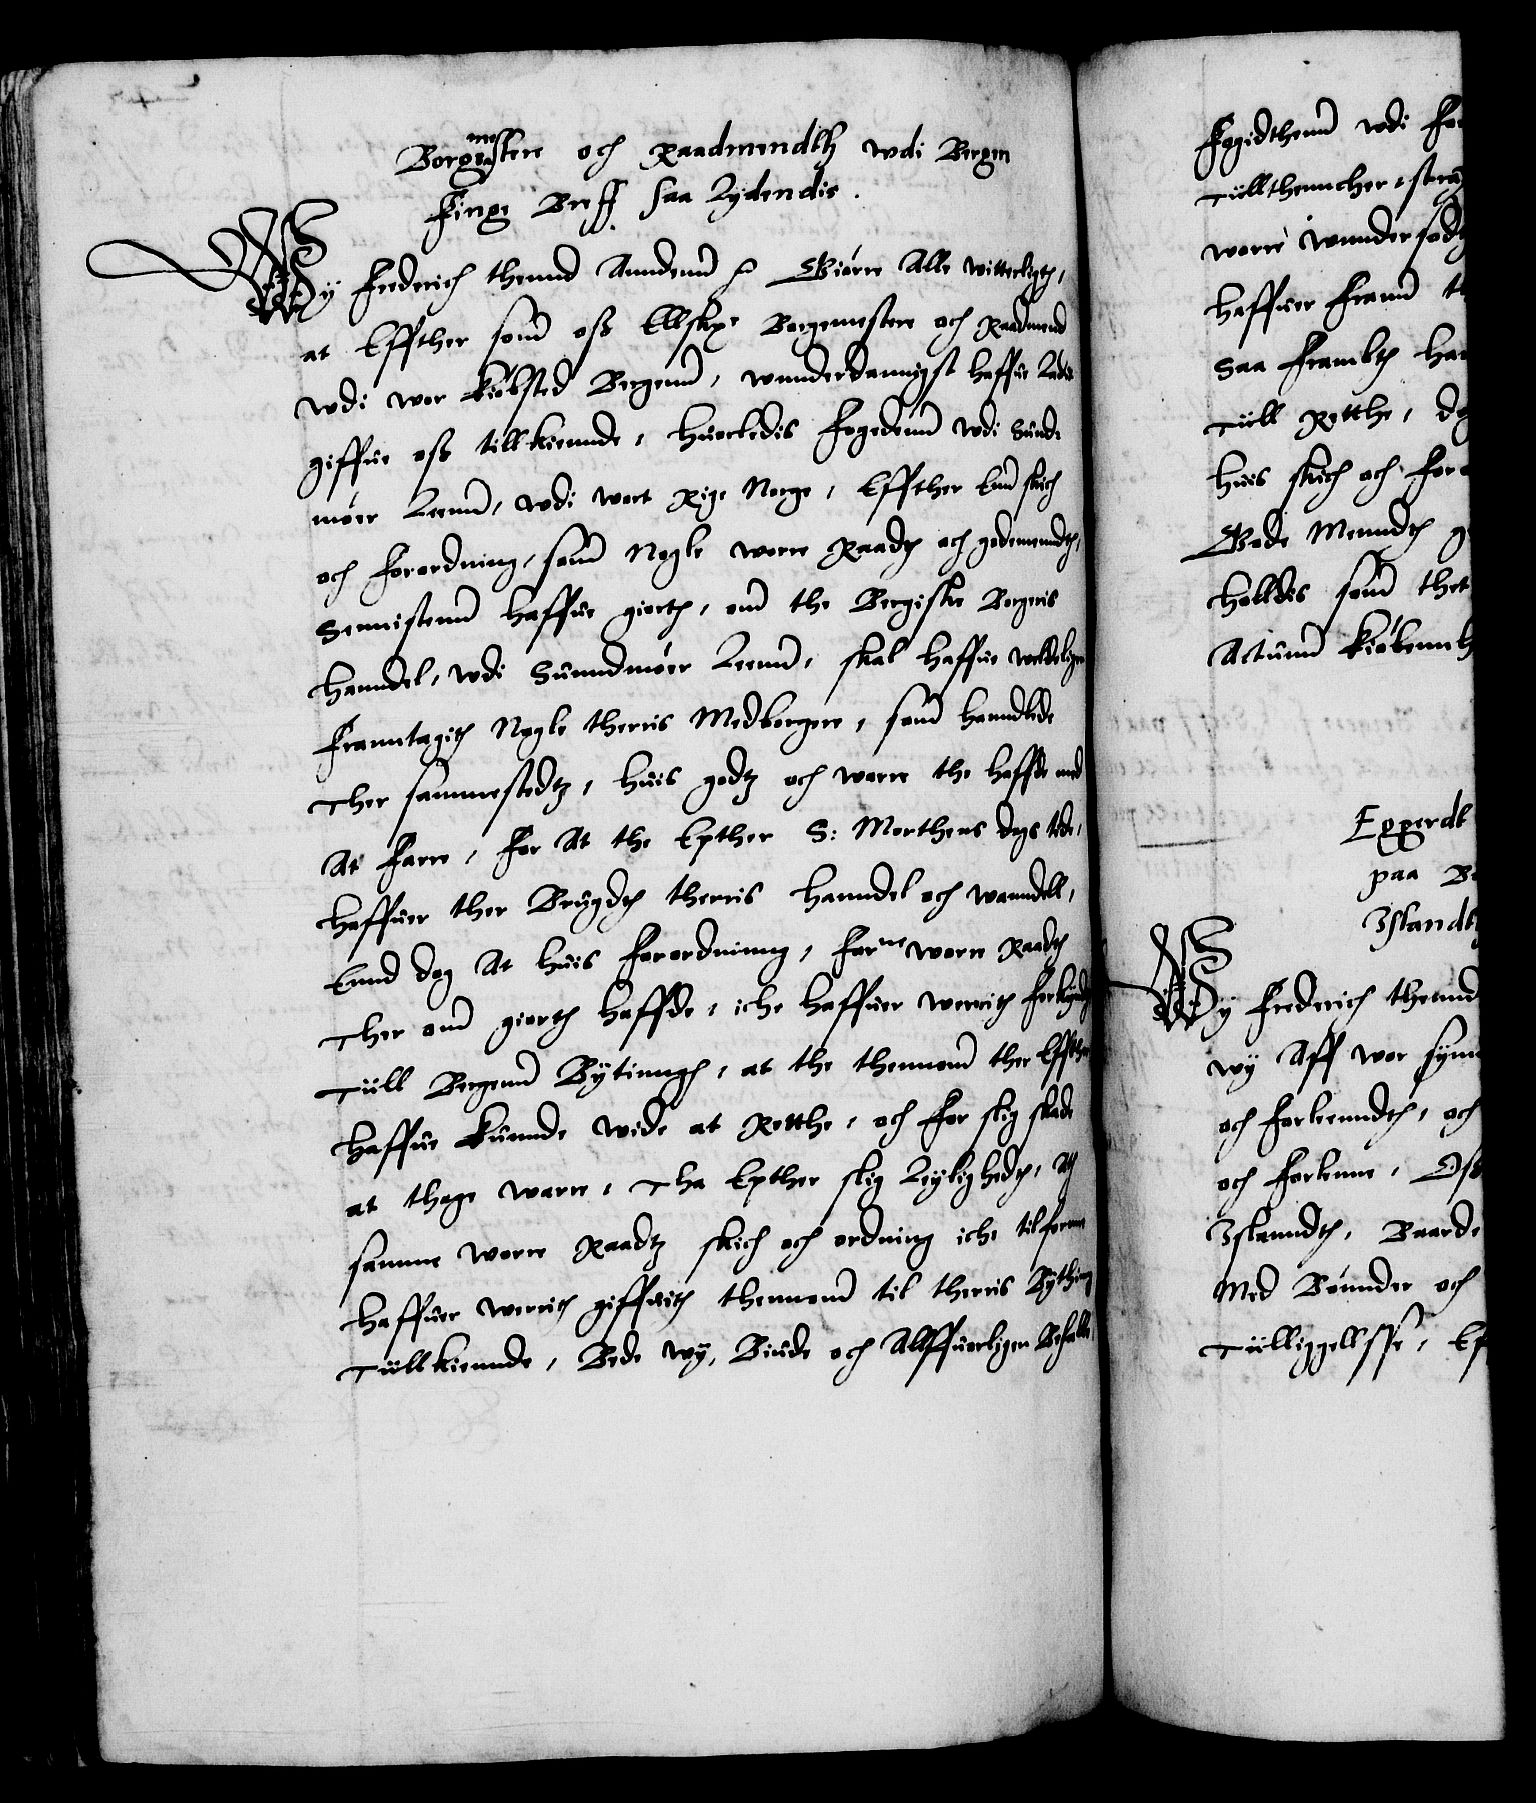 Borgmestere och Raadmendth wdi Bergen
Finge Breff saa Lydendis.
Wy Frederich thend Anndenn etc Giørre Alle witterligth,
at Effther som oss Elskee Borgemestere och Raadmend
wdi wor Kiøbsted Bergenn, wnnderdannigst haffue Ladit
giffue oss tillkiennde, huorledis Fogedenn wdi Sund
møer Leenn, wdi wort Rige Norge, Effther Enn skich
och Forordning, som Nogle worre Raadh och godemenndh,
Sennistenn haffue giorth, om the Bergiske Borgeris
Hanndel, wdi Sunndmøer Leenn, skal haffue weldeligen
Franntagith Nogle therris Medborgere, som hanndlede
Ther sammestedtz, huis godtz och warre the haffde med
At Farre, For At the Epther S: Morthens dags tide,
haffuer ther Brugdh therris Hanndel och wanndell,
Ennd dog At huis Forordning, Forne worre Raadh
Ther om giorth haffde, iche haffuer werrith forkyndh
Tiill Bergenn Bytinngh, at the thennom ther Effther
haffue kunnde wide at Retthe, och For slig skade
at thage warre, Tha Epther slig Leylighedh, Ath
samme worre Raadtz skich och ordning iche tilforne
haffuer werrith giffuith thennom til therris Bything
Tiillkiennde, Bede wy, Biude och Allffuorligen Befalle,
Fogidthenn wdi
Tiillthenncher,
worre wnnder
haffuer Frann
Saa Frambth
Tiill Retthe,
huis skich och
Gode Menndh
holldis som thet
Actum Kiøbennh
Eggerdt
paa
Islandt
Wy Frederich thennd
wy Aff wor synn
och Forleenndh, och
och Forlenne,
Islanndh, Baarde
Med Bønnder och
Tiilliggellsse,